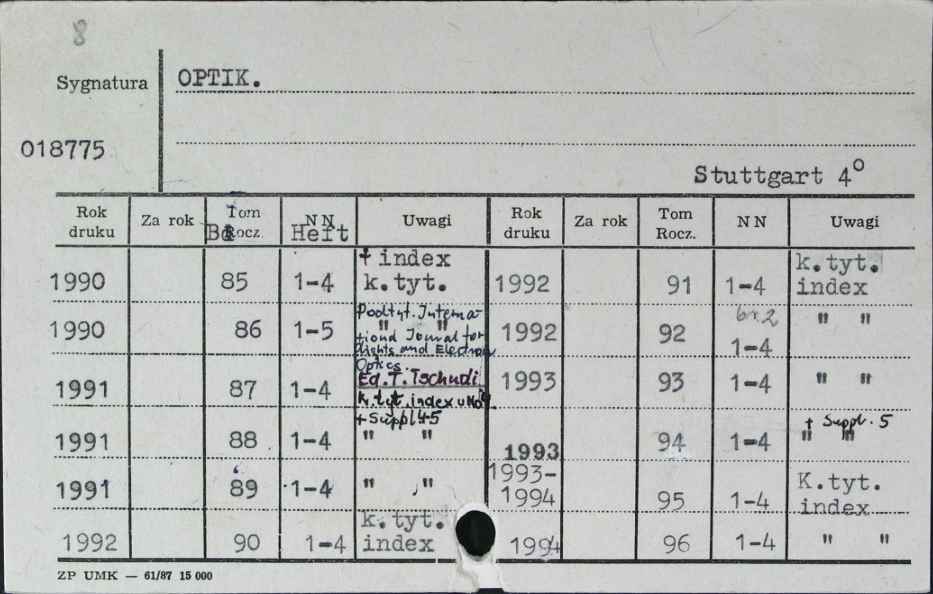 8
Sygnatura OPTIK.
018775
Stuttgart 4°
Rok druku Za rok Tom Rocz. Bd NN Heft Uwagi Rok druku Za rok Tom Rocz. NN Uwagi
1990 85 1-4 + index k.tyt. 1992 91 1-4 k.tyt. index
1990 86 1-5 " " Podtyt. Interna-
tional Journal for
Lights and Electron
Optics. 1992 92 1-4 " "
1991 87 1-4 Ed. T. Tschudi
k. tyt. index u No 4 1993 93 1-4 " "
1991 88 1-4 + Suppl 4 5
" " 1993 94 1-4 + Suppl. 5
" "
1991 89 1-4 " " 1993-1994 95 1-4 K.tyt. index
1992 90 1-4 k.tyt. index 1994 96 1-4 " "
ZP UMK — 61/87 15 000